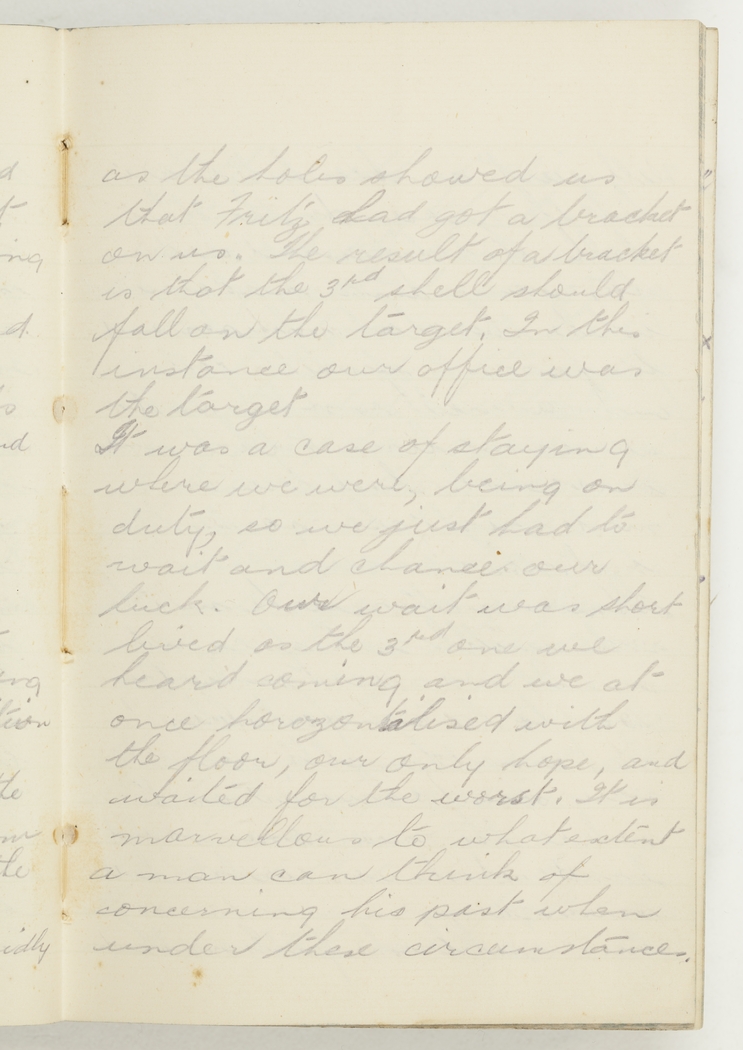 as the holes showed us
that Fritz had got a bracket
on us. The result of a bracket
is that the 3rd shell should
fall on the target. In this
instance our office was
the target
It was a case of staying
where we were, being on
duty, so we just had to
wait and chance our
luck. Our wait was short
lived as the 3rd one we
heard coming and we at
once horozontalised with
the floor, our only hope, and
waited for the worst. It is
marvellous to what extent
a man can think of
concerning his past when
under these circumstances.